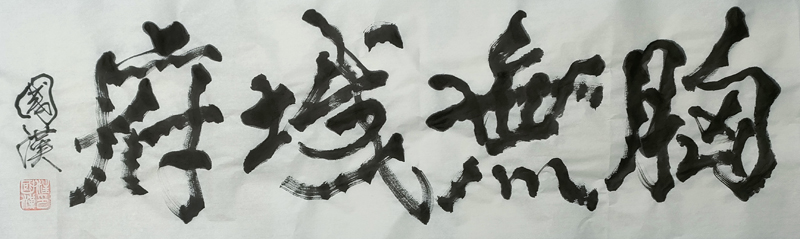 胸無城府
國漢